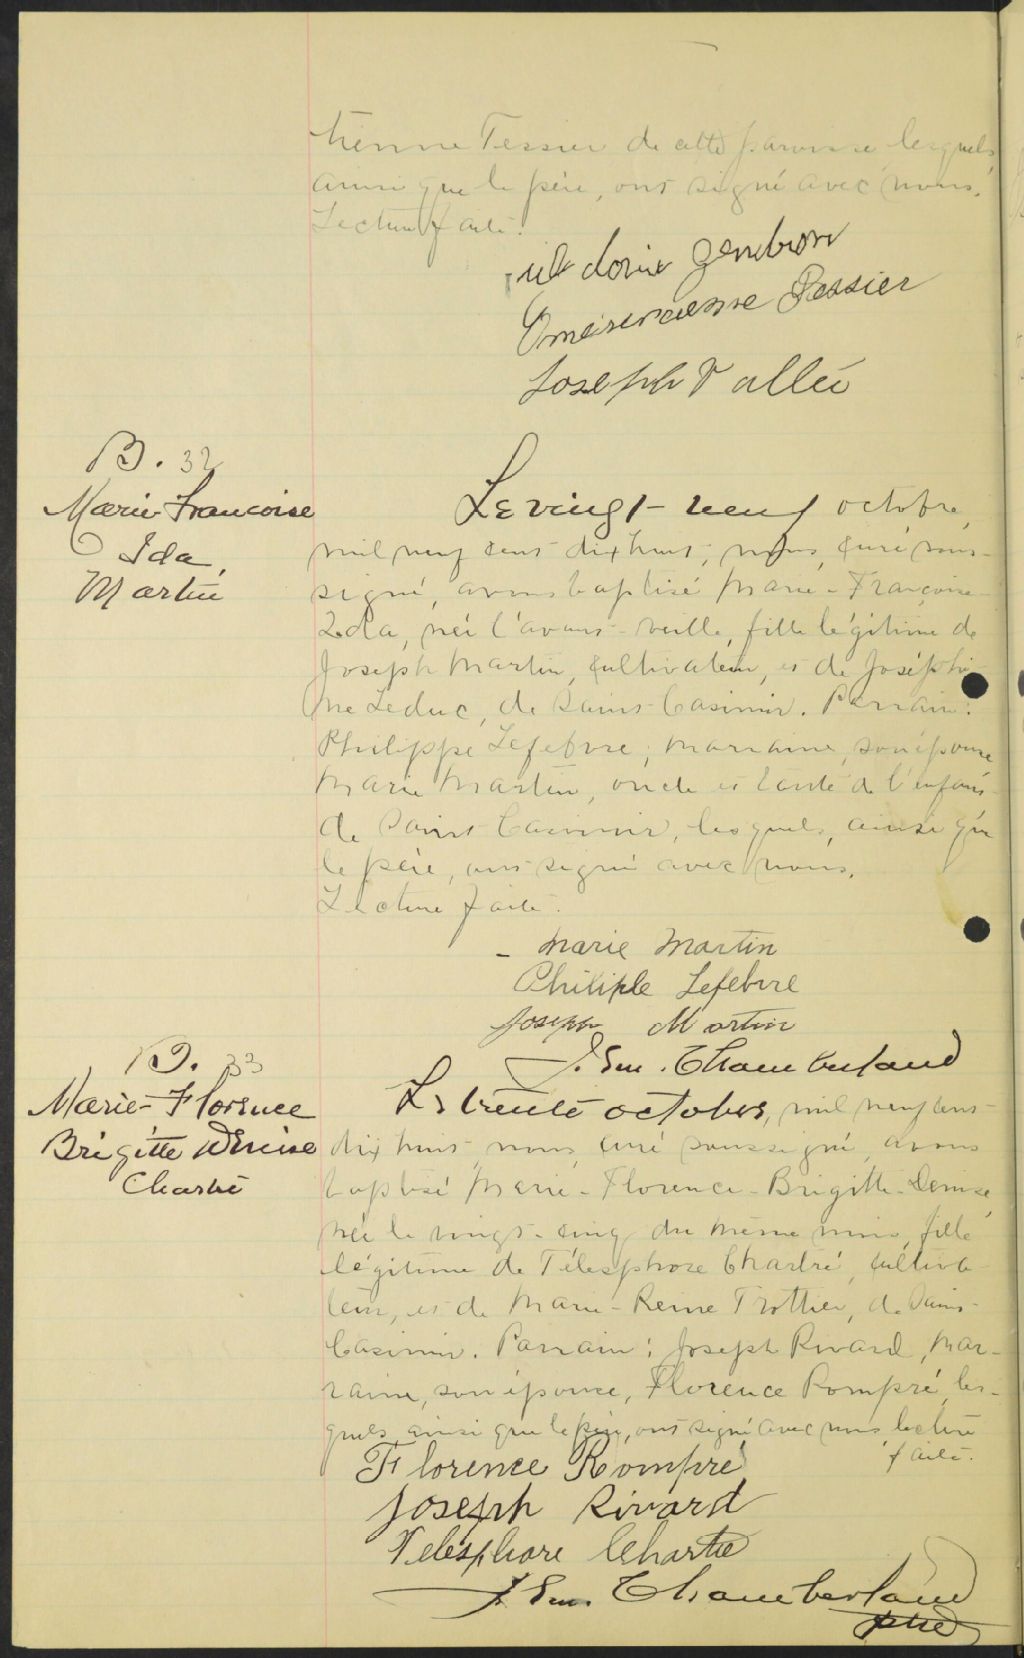 tienne Tessier de cette paroisse lesquels,
ainsi que le père, ont signé avec nous.
Lecture faite.
dorix Gendron
Tessier
Joseph Vallée
B. 32
Marie Francoise
Ida,
Martin
Le vingt-neuf octobre,
mil neuf cent dix huit, nous, curé sous-
signé, avons baptisé Marie-Françoise-
Ida, née l'avant-veille, fille légitime de
Joseph Martin, cultivateur, et de Joséphi-
ne Leduc, de Saint-Casimir. Parrain:
Philippe Lefebvre; marraine, son épouse
Marie Martin, oncle et tante de l'enfant
de Saint Casimir, lesquels, ainsi que
le père, ont signé avec nous.
Lecture faite.
- Marie Martin
Philiple Lefebvre
Joseph Martin
J. Em. Chamberland
B. 33
Marie-Florence
Brigitte Denise
Chartré
Le trente octobre, mil neuf cent
dix huit, nous, curé soussigné, avons
baptisé Marie-Florence-Brigitte-Denise,
née le vingt-cinq du même mois, fille
légitime de Télesphore Chartré, cultiva-
teur, et de Marie-Reine Trottier, de Saint-
Casimir. Parrain: Joseph Rivard, mar-
raine, son épouse, Florence Rompré, les-
quels, ainsi que le père, ont signé avec nous lecture
faite.
Florence Rompré
Joseph Rivard
Télésphore Chartré
J. Em. Chamberland
ptre